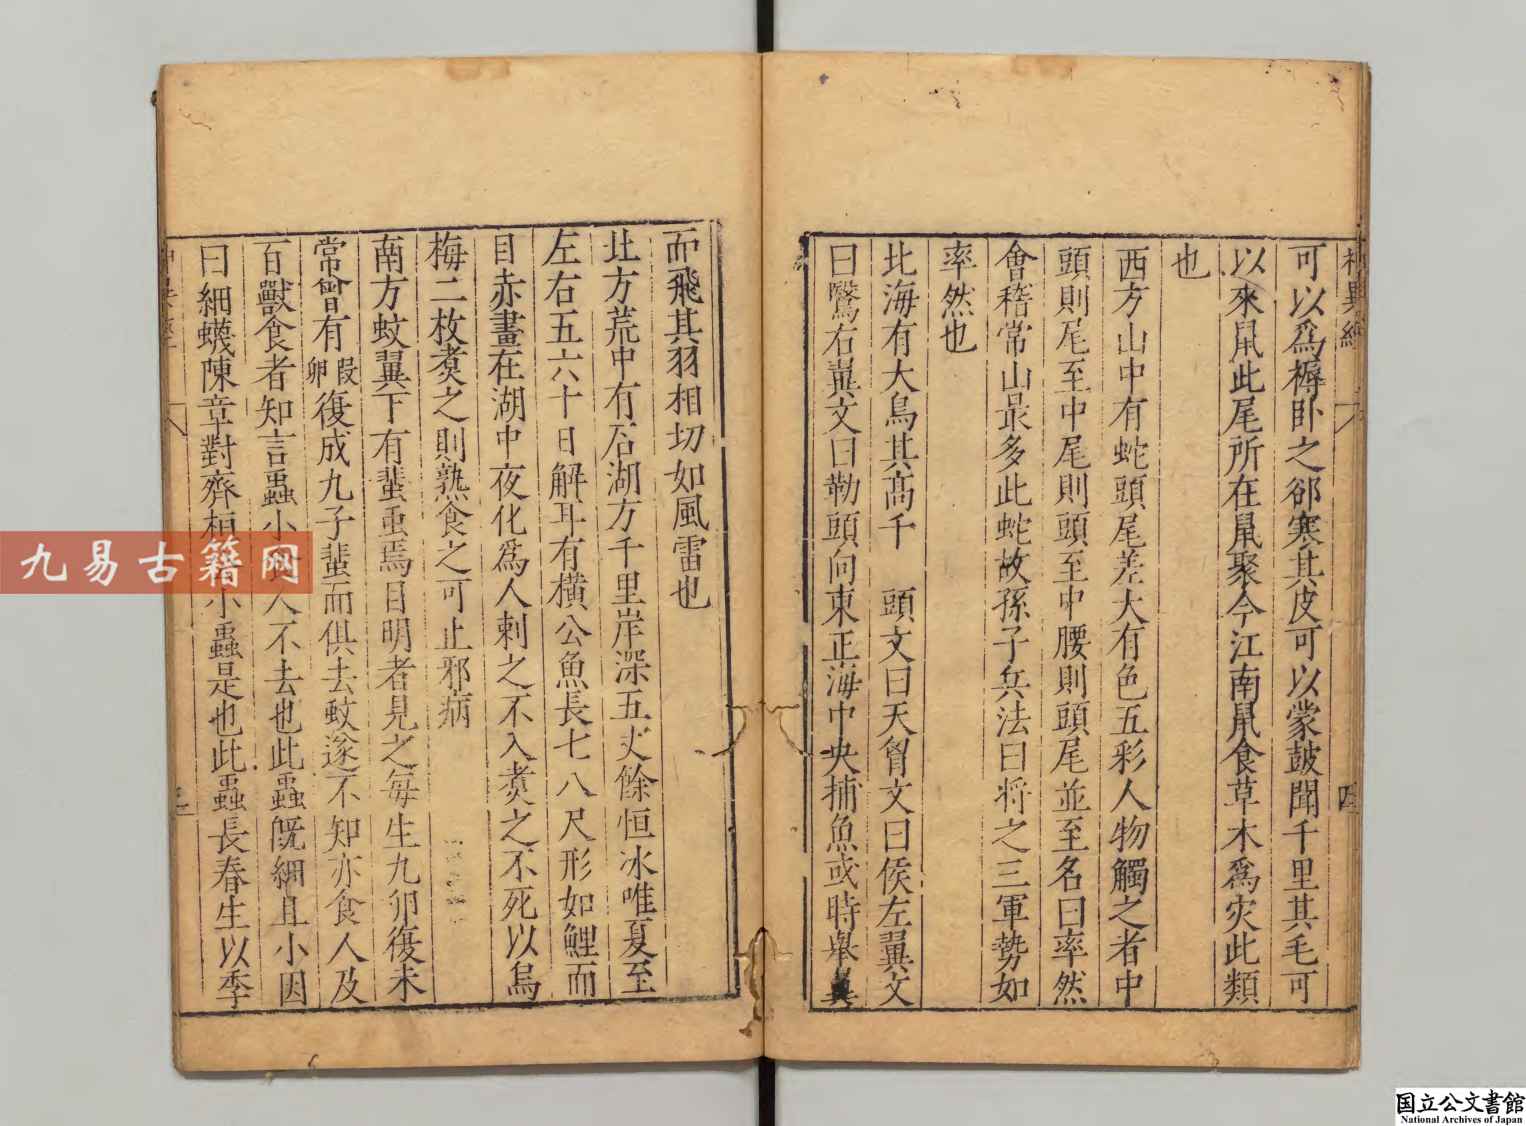 神異經
四
可以爲褥卧之卻寒其皮可以蒙鼓聞千里其毛可
以來鼠此尾所在鼠聚今江南鼠食草木爲灾此類
也
西方山中有蛇頭尾差大有色五彩人物觸之者中
頭則尾至中尾則頭至中腰則頭尾並至名曰率然
會稽常山最多此蛇故孫子兵法曰將之三軍勢如
率然也
北海有大鳥其高千 頭文曰天胷文曰侯左翼文
曰鷖右翼文曰勒頭向東正海中央捕魚或時舉翼
而飛其羽相切如風雷也
北方荒中有石湖方千里岸深五丈餘恒冰唯夏至
左右五六十日解耳有橫公魚長七八尺形如鯉而
目赤晝在湖中夜化爲人刺之不入煑之不死以烏
梅二枚煑之則熟食之可止邪病
南方蚊翼下有蜚虫焉目明者見之每生九卵復未
常曾有㲉卵復成九子蜚而俱去蚊遂不知亦食人及
百獸食者知言蟲小人不去也此蟲旣細且小因
曰細蠛陳章對齊桓小蟲是也此蟲長春生以季
九易古籍网
国立公文書館
National Archives of Japan